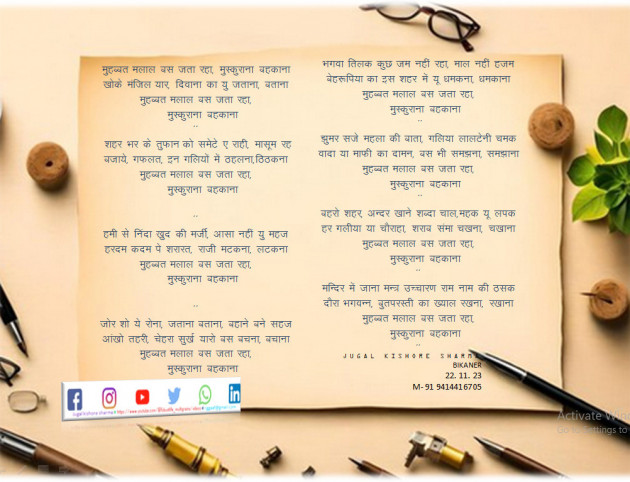 मुहब्बत मलाल बस जता रहा, मुस्कुराना बहकाना
खोके मंजिल यार, दिवाना का यु जताना, बताना
मुहब्बत मलाल बस जता रहा,
मुस्कुराना बहकाना
..
शहर भर के तुफान को समेटे ए राही, मासूम रह
बजाये, गफलत, इन गलियों में ठहलना,ठिठकना
मुहब्बत मलाल बस जता रहा,
मुस्कुराना बहकाना
..
हमी से निंदा खुद की मर्जी, आसा नही यु महज
हरदम कदम पे शरारत, राजी मटकना, लटकना
मुहब्बत मलाल बस जता रहा,
मुस्कुराना बहकाना
..
जोर शो ये रोना, जताना बताना, बहाने बने सहज
आंखो तहरी, चेहरा सुर्ख यारो बस बचना, बचाना
मुहब्बत मलाल बस जता रहा,
मुस्कुराना बहकाना
भगवा तिलक कुछ जम नही रहा, माल नही हजम
बेहरूपिया का इस शहर मे यू धमकना, धमकाना
मुहब्बत मलाल बस जता रहा,
मुस्कुराना बहकाना
..
झुमर सजे महला की बाता, गलिया लालटेनी चमक
वादा या माफी का दामन, बस भी समझना, समझाना
मुहब्बत मलाल बस जता रहा,
मुस्कुराना बहकाना
..
बहरो शहर, अन्दर खाने शब्दा चाल,महक यू लपक
हर गलीया या चौराहा, शराब संमा चखना, चखाना
मुहब्बत मलाल बस जता रहा,
मुस्कुराना बहकाना
..
मन्दिर में जाना मन्त्र उच्चारण राम नाम की ठसक
दौरा भगवन्न, बुतपरस्ती का ख्याल रखना, रखाना
मुहब्बत मलाल बस जता रहा,
मुस्कुराना बहकाना
..
JUGAL KISHORE SHARMA
BIKANER
22. 11. 23
M- 91 9414416705
Activate Win